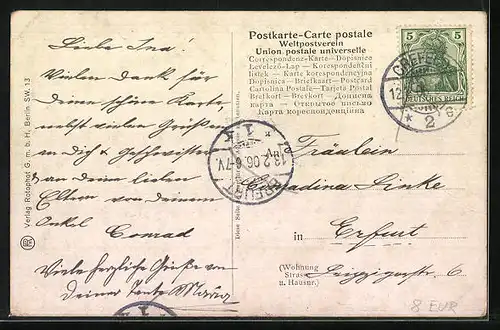 Postkarte-Carte postale
Weltpostverein
Union postale universelle
Correspondenz-Karte — Dopisnice
Levelező-Lap — Korespondentni
listek — Karta korespondencyjna
Dopisnica — Briefkaart — Postcard
Cartolina Postale — Tarjeta Postal
Brefkort — Brevkort — Дописна
карта — Открытое письмо
Карта кореспонденційна
5 5
DEUTSCHES REICH
CREFELD
12
* 2 e
Liebe Ina!
Vielen Dank für
deine schöne Karte,
nebst vielen Grüßen
an dich & Geschwister
& an deine lieben
Eltern von deinem
Onkel
Conrad
Viele herzliche Grüße von
Deiner Tante
ERFURT
13.2.06. 6-7V.
* 1
Fräulein
Linke
in Erfurt
(Wohnung
Strasse
u. Hausnr.)
Leipzigerstr. 6
Verlag Rotophot G. m. b. H., Berlin SW. 13
8 EUR